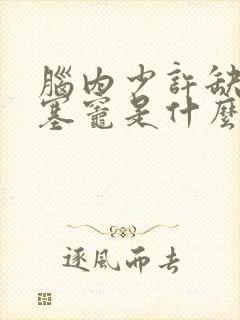 腦內少許缺
塞竈是什麼
逐風而去